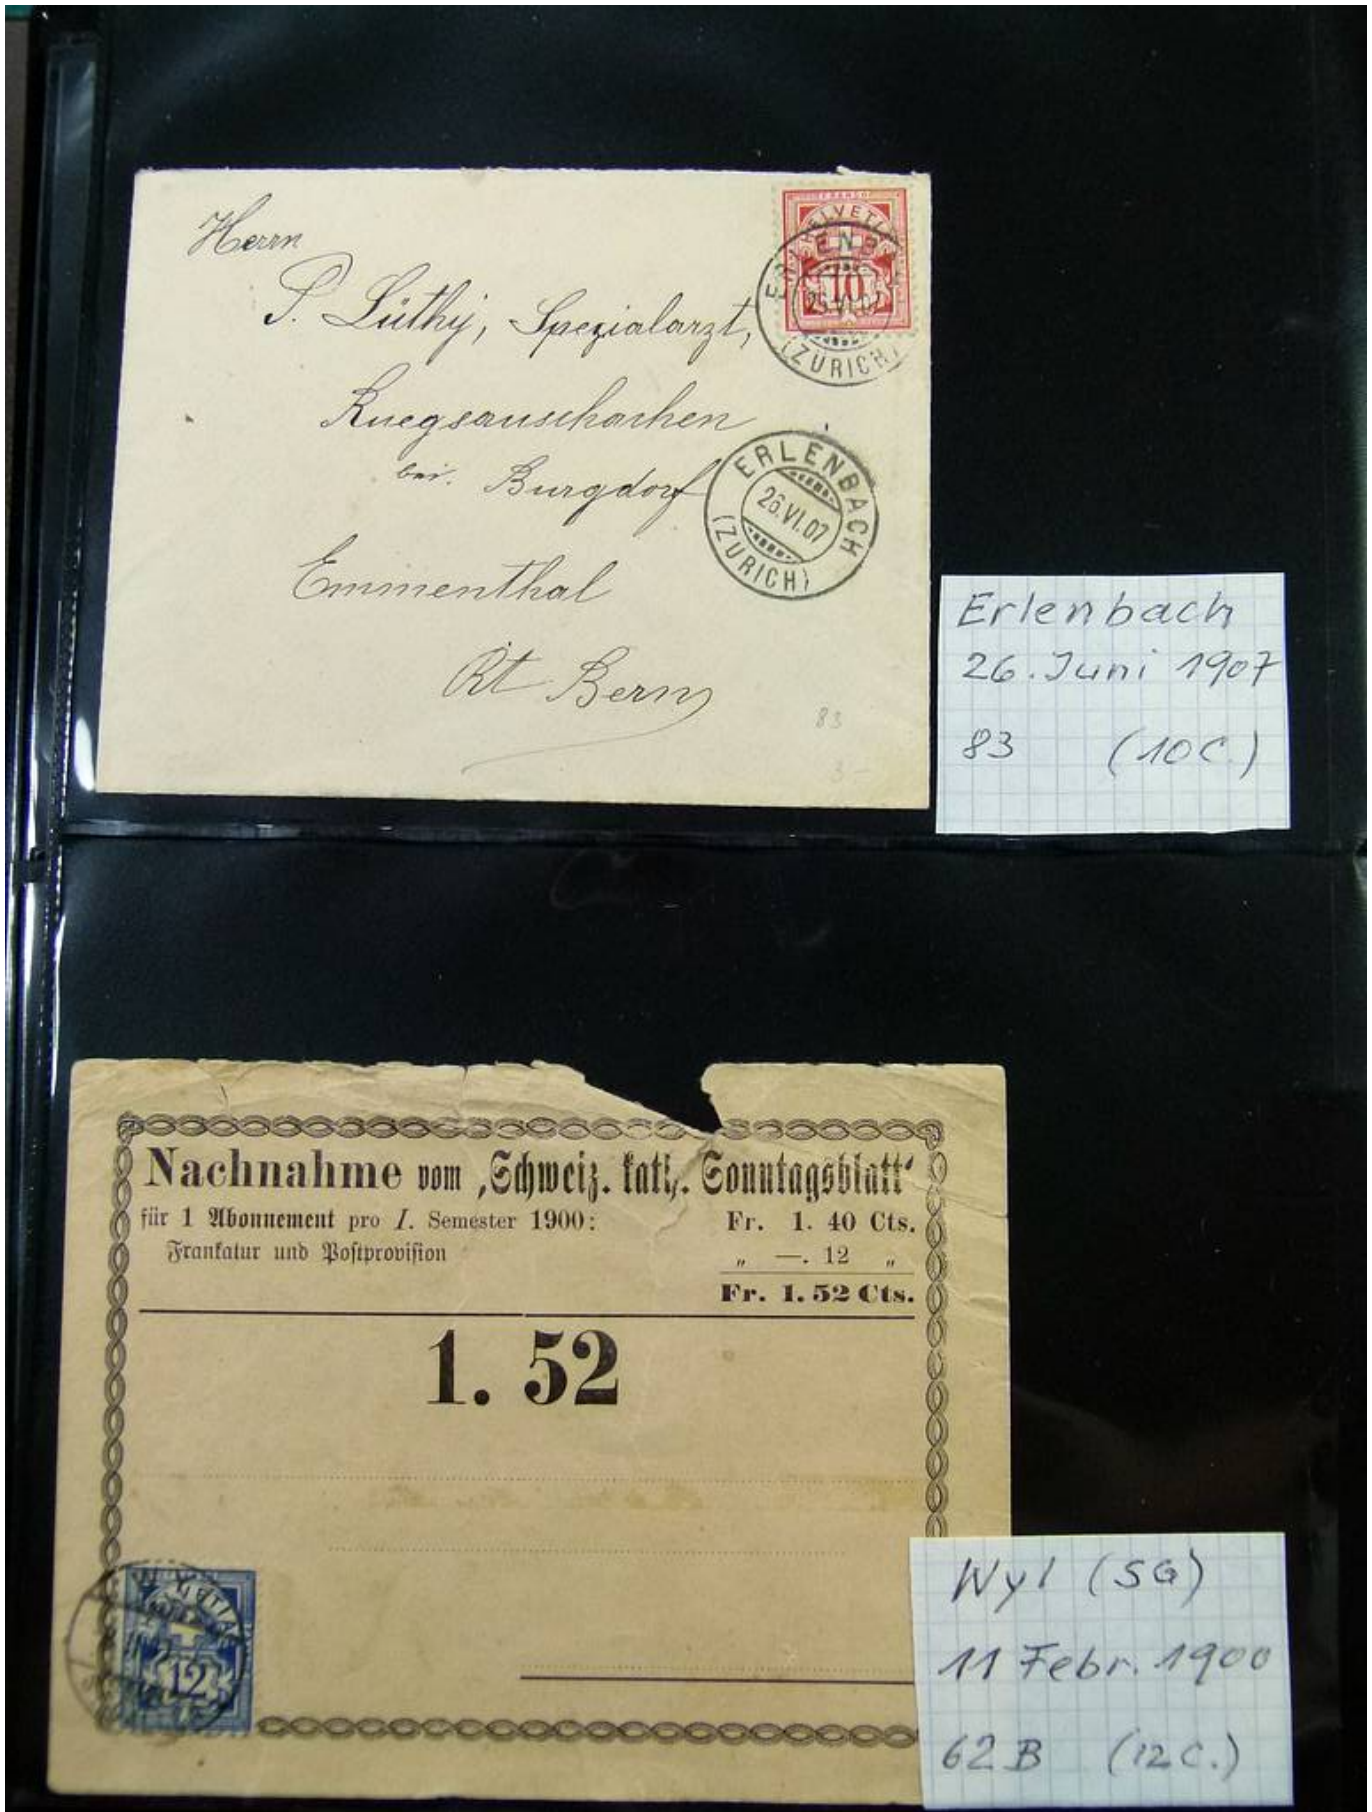 Herrn
P. Lüthy, Spezialarzt,
Ruegsauschachen
bei. Burgdorf
Emmenthal
Kt Bern
FRANCO
HELVETIA
10
ENB
VI.07
(ZÜRICH)
ERLENBACH
26.VI.07
(ZÜRICH)
83
3.-
Erlenbach
26. Juni 1907
83 (10 C.)
Nachnahme vom „Schweiz. kath. Sonntagsblatt“
für 1 Abonnement pro I. Semester 1900: Fr. 1. 40 Cts.
Frankatur und Postprovision „ —. 12 „
Fr. 1. 52 Cts.
1. 52
12
Wyl (SG)
11 Febr. 1900
62 B (12 C.)